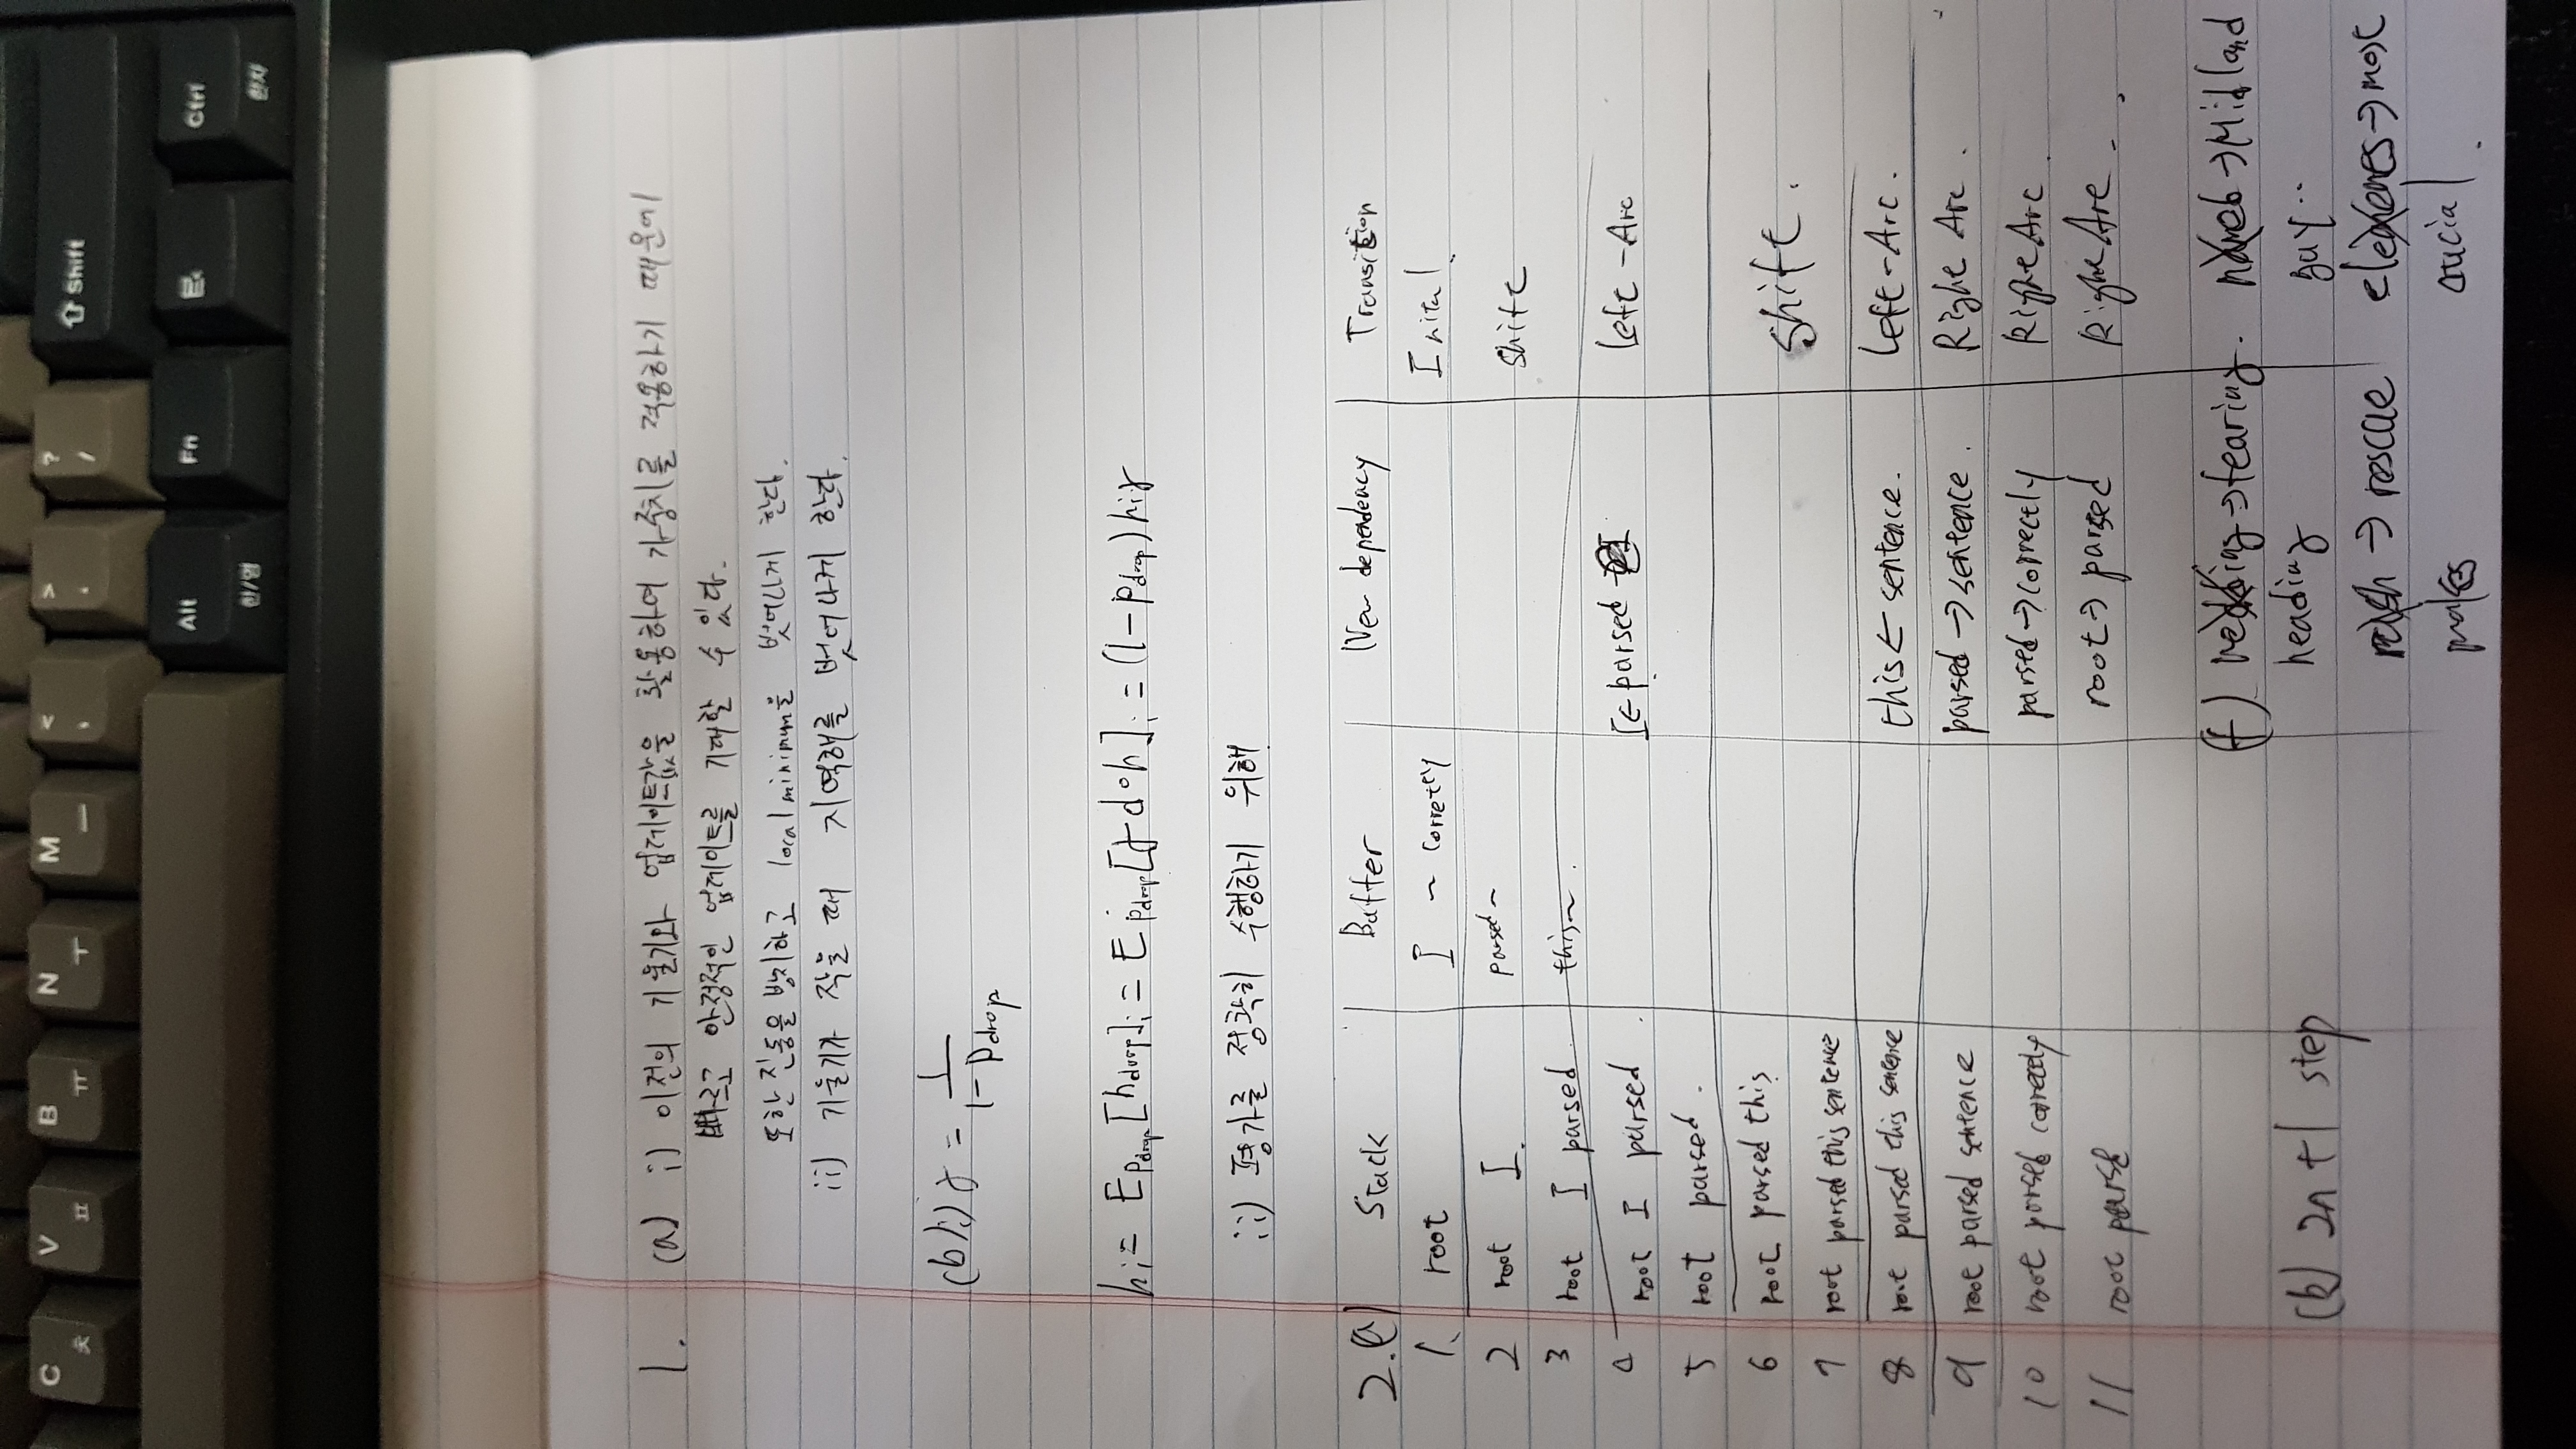 C ㅊ V ㅍ B ㅠ N ㅜ M ㅡ < , > . ? / ⇧ Shift
Alt 한/영 Fn Ctrl 한자
1. (a) i) 이전의 기울기와 업데이트값을 활용하여 가중치를 적용하기 때문에
빠르고 안정적인 업데이트를 기대할 수 있다.
또한 진동을 방지하고 local minimum을 벗어나게 한다.
ii) 기울기가 작을 때 지역해를 벗어나게 한다.
(b) i) γ = 1 / (1 - Pdrop)
hi = E Pdrop [hdrop]i = E Pdrop [γ d∘h]i = (1 - Pdrop) hi γ
ii) 평가를 정확히 수행하기 위해
2. (a) Stack Buffer New dependency Transition
1. root I ~ corretly Inital.
2 root I. parsed ~ Shift
3 root I parsed. this ~.
4 root I parsed. I ← parsed Left-Arc
5 root parsed.
6 root parsed this shift.
7 root parsed this sentence
8 root parsed this sentence this ← sentence. Left-Arc.
9 root parsed sentence parsed → sentence. Right Arc.
10 root parsed correctly parsed → correctly Right Arc.
11 root parse root → parsed Right Arc.
(f) → fearing. → Midland
heading guy..
(b) 2n+1 step
→ rescue → most
makes crucial.